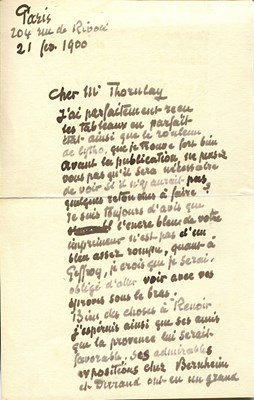 Paris
204 rue de Rivoli
21 fev. 1900
Cher Mr Thornlay
J'ai parfaitement recu
les tableaux en parfait
état ainsi que le rouleau
de lytho. que je trouve fort bien
avant la publication, ne pensez
vous pas qu'il sera nécessaire
de voir si il n'y aurait pas
quelques retouches à faire?
Je suis toujours d'avis que
l'encre bleue de votre
imprimeur n'est pas d'un
bleu assez rompu, quant à
Geffroy, je crois que je serai
obligé d'aller voir avec vos
épreuves sous le bras.
Bien des choses à Renoir
J'espérais ainsi que ses amis
que la provence lui serait
favorable. Ses admirables
expositions chez Bernheim
et Durand ont eu un grand